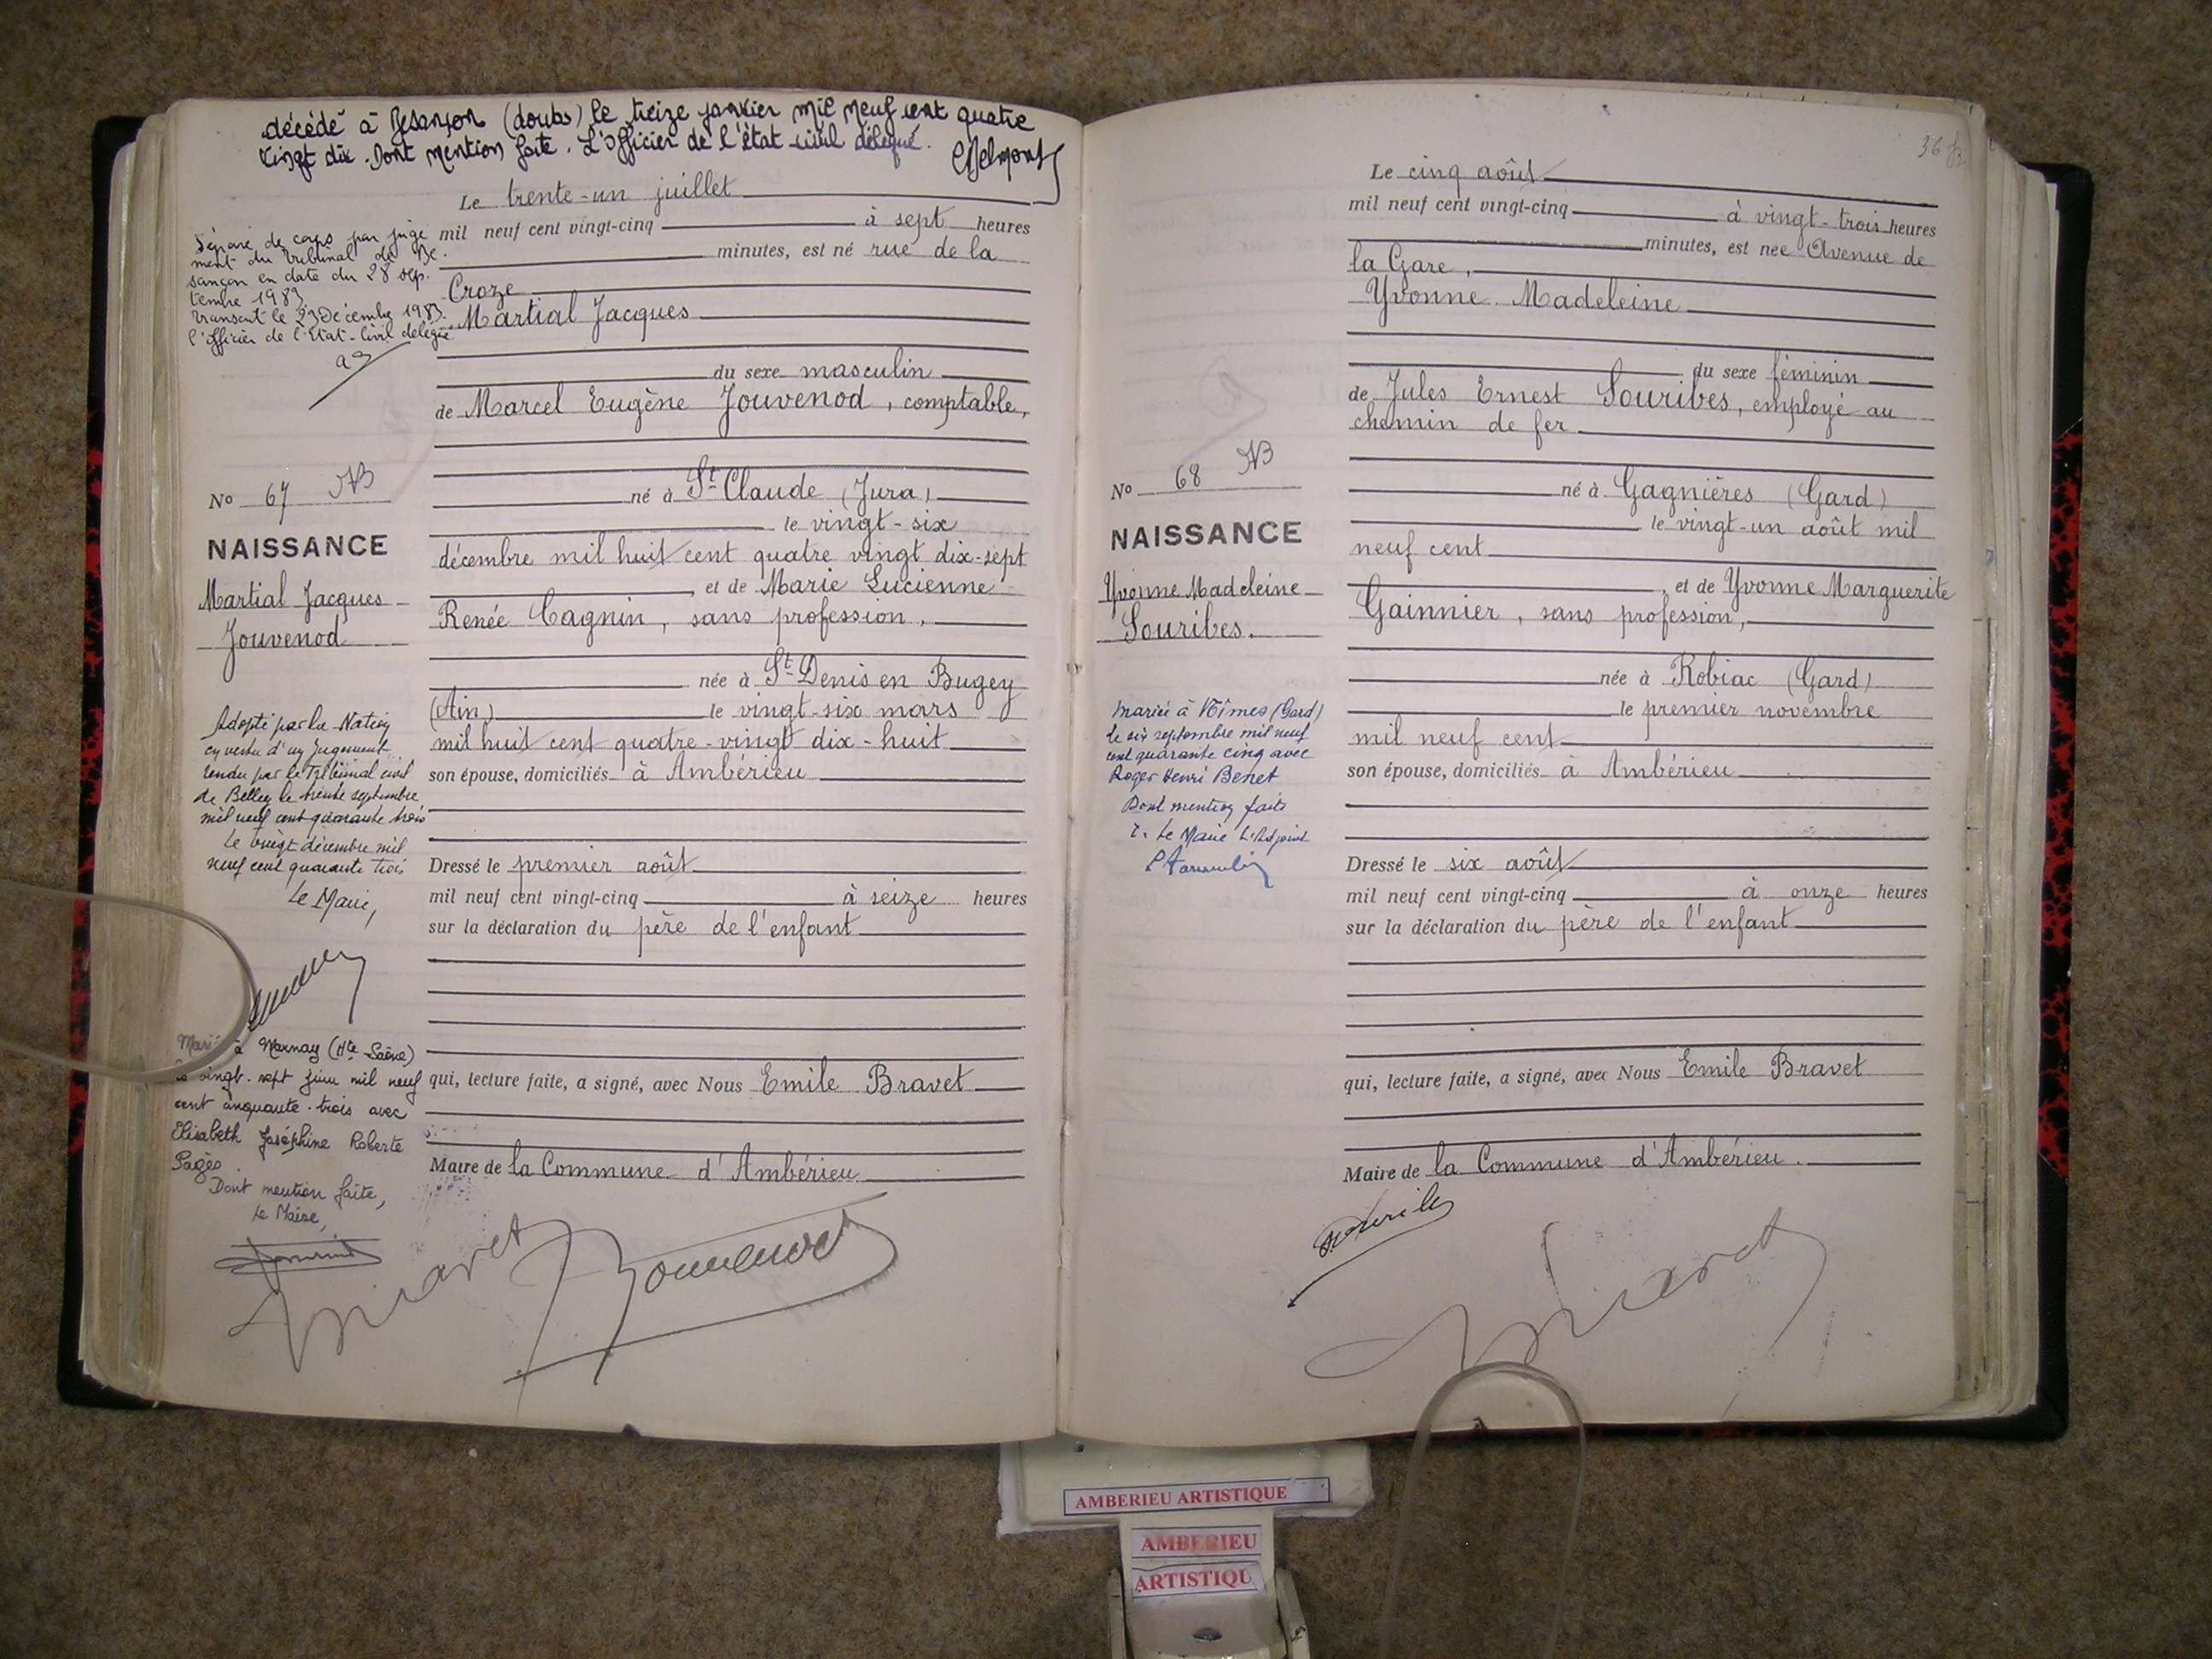 décédé à Besançon (doubs) le treize janvier mil neuf cent quatre
vingt dix. Dont mention faite. L'Officier de l'état civil délégué.
Le trente-un juillet
mil neuf cent vingt-cinq à sept heures
minutes, est né rue de la
Croze
Martial Jacques
du sexe masculin
de Marcel Eugène Jouvenod, comptable,
né à St Claude (Jura)
le vingt-six
décembre mil huit cent quatre vingt dix-sept
et de Marie Lucienne
Renée Cagnin, sans profession,
née à St Denis en Bugey
(Ain) le vingt-six mars
mil huit cent quatre-vingt dix-huit
son épouse, domiciliés à Ambérieu
Dressé le premier août
mil neuf cent vingt-cinq à seize heures
sur la déclaration du père de l'enfant
qui, lecture faite, a signé, avec Nous Emile Bravet
Maire de la Commune d'Ambérieu
Séparé de corps par juge
ment du tribunal de Be
sançon en date du 28 sep.
tembre 1983
transcrit le 23 Décembre 1983.
l'officier de l'Etat-Civil délégué
No 67
NAISSANCE
Martial Jacques
Jouvenod
Adopté par la Nation
en vertu d'un jugement
rendu par le Tribunal civil
de Belley le trente septembre
mil neuf cent quarante trois
Le vingt décembre mil
neuf cent quarante trois
Le Maire,
Marié à Marnay (Hte Saône)
le vingt-sept juin mil neuf
cent cinquante-trois avec
Elisabeth Joséphine Roberte
Pagès.
Dont mention faite,
Le Maire,
36
Le cinq août
mil neuf cent vingt-cinq à vingt-trois heures
minutes, est née Avenue de
la Gare,
Yvonne Madeleine
du sexe féminin
de Jules Ernest Souribes, employé au
chemin de fer
né à Gagnières (Gard)
le vingt-un août mil
neuf cent
et de Yvonne Marguerite
Gainnier, sans profession,
née à Robiac (Gard)
le premier novembre
mil neuf cent
son épouse, domiciliés à Ambérieu
Dressé le six août
mil neuf cent vingt-cinq à onze heures
sur la déclaration du père de l'enfant
qui, lecture faite, a signé, avec Nous Emile Bravet
Maire de la Commune d'Ambérieu.
No 68
NAISSANCE
Yvonne Madeleine
Souribes.
Mariée à Nîmes (Gard)
le six septembre mil neuf
cent quarante cinq avec
Roger Henri Benet
Dont mention faite
Le Maire L'Adjoint
AMBERIEU ARTISTIQUE
AMBERIEU
ARTISTIQU